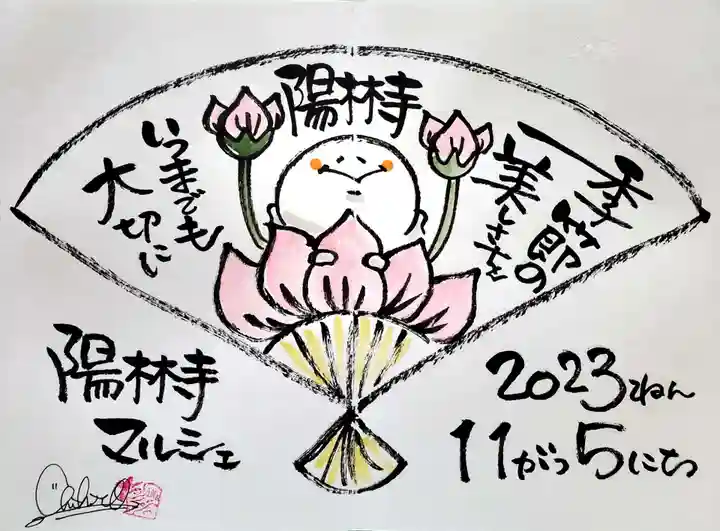 陽林寺
季節の
美しさを
いつまでも
大切に
陽林寺
マルシェ
2023ねん
11がつ5にち